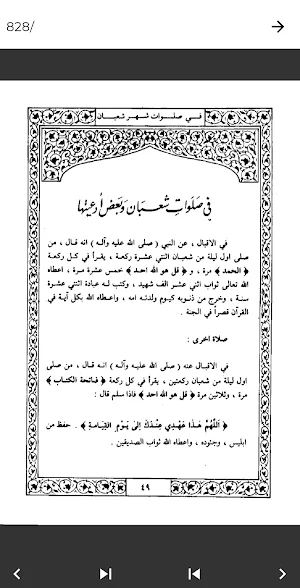 828/
في صلوات شهر شعبان
في صلوات شعبان وبعض أدعيتها
في الاقبال ، عن النبي ( صلى الله عليه وآله ) انه قال ، من
صلى اول ليلة من شعبان اثنتي عشرة ركعة ، يقرأ في كل ركعة
﴿ الحمد ﴾ مرة ، و ﴿ قل هو الله احد ﴾ خمس عشرة مرة ، اعطاه
الله تعالى ثواب اثني عشر الف شهيد ، وكتب له عبادة اثنتي عشرة
سنة ، وخرج من ذنوبه كيوم ولدته امه ، واعطاه الله بكل آية في
القرآن قصراً في الجنة .
صلاة اخرى :
في الاقبال عنه ( صلى الله عليه وآله ) انه قال ، من صلى
اول ليلة من شعبان ركعتين ، يقرأ في كل ركعة ﴿ فاتحة الكتاب ﴾
مرة ، وثلاثين مرة ﴿ قل هو الله احد ﴾ فاذا سلم قال :
﴿ اَللّهُمَّ هَذا عَهْدِي عِنْدَكَ اِلى يَوْمِ القِيامَةِ ﴾ . حفظ من
ابليس ، وجنوده ، واعطاه الله ثواب الصديقين .
٤٩